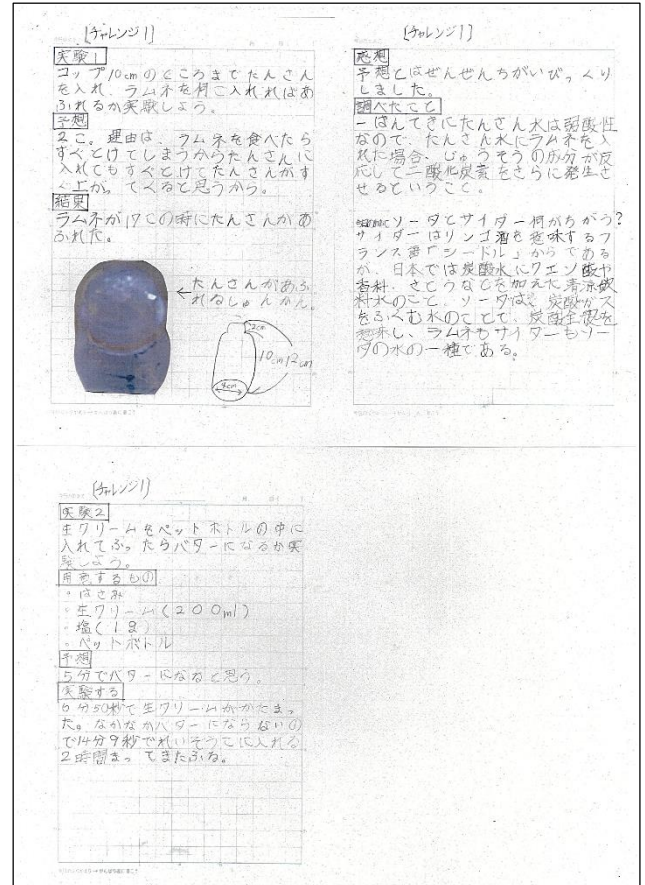 [チャレンジ1]
実験1
コップ10cmのところまでたんさん
を入れ、ラムネを何こ入れればあ
ふれるか実験しよう。
予想
2こ。理由は、ラムネを食べたら
すぐとけてしまうからたんさんに
入れてもすぐとけてたんさんがす
ぐ上がってくると思うから。
結果
ラムネが17この時にたんさんがあ
ふれた。
←たんさんがあふ
れるしゅんかん。
2cm
10cm
12cm
4cm
[チャレンジ1]
感想
予想とはぜんぜんちがいびっくり
しました。
調べたこと
一ぱんてきにたんさん水は弱酸性
なので、たんさん水にラムネを入
れた場合、じゅうそうの成分が反
応して二酸化炭素をさらに発生さ
せるということ。
ソーダとサイダー何がちがう?
サイダーはリンゴ酒を意味するフ
ランス語「シードル」からである
が、日本では炭酸水にクエン酸や
香料、さとうなどを加えた清涼飲
料水のこと、ソーダは、炭酸ガス
をふくむ水のことで、炭酸全般を
意味し、ラムネもサイダーもソー
ダの水の一種である。
[チャレンジ1]
実験2
生クリームをペットボトルの中に
入れてふったらバターになるか実
験しよう。
用意するもの
・はさみ
・生クリーム(200ml)
・塩(1g)
・ペットボトル
予想
5分でバターになると思う。
実験する
6分50秒で生クリームがかたまっ
た。なかなかバターにならないの
で14分9秒でれいぞうこに入れる
2時間まってまたふる。